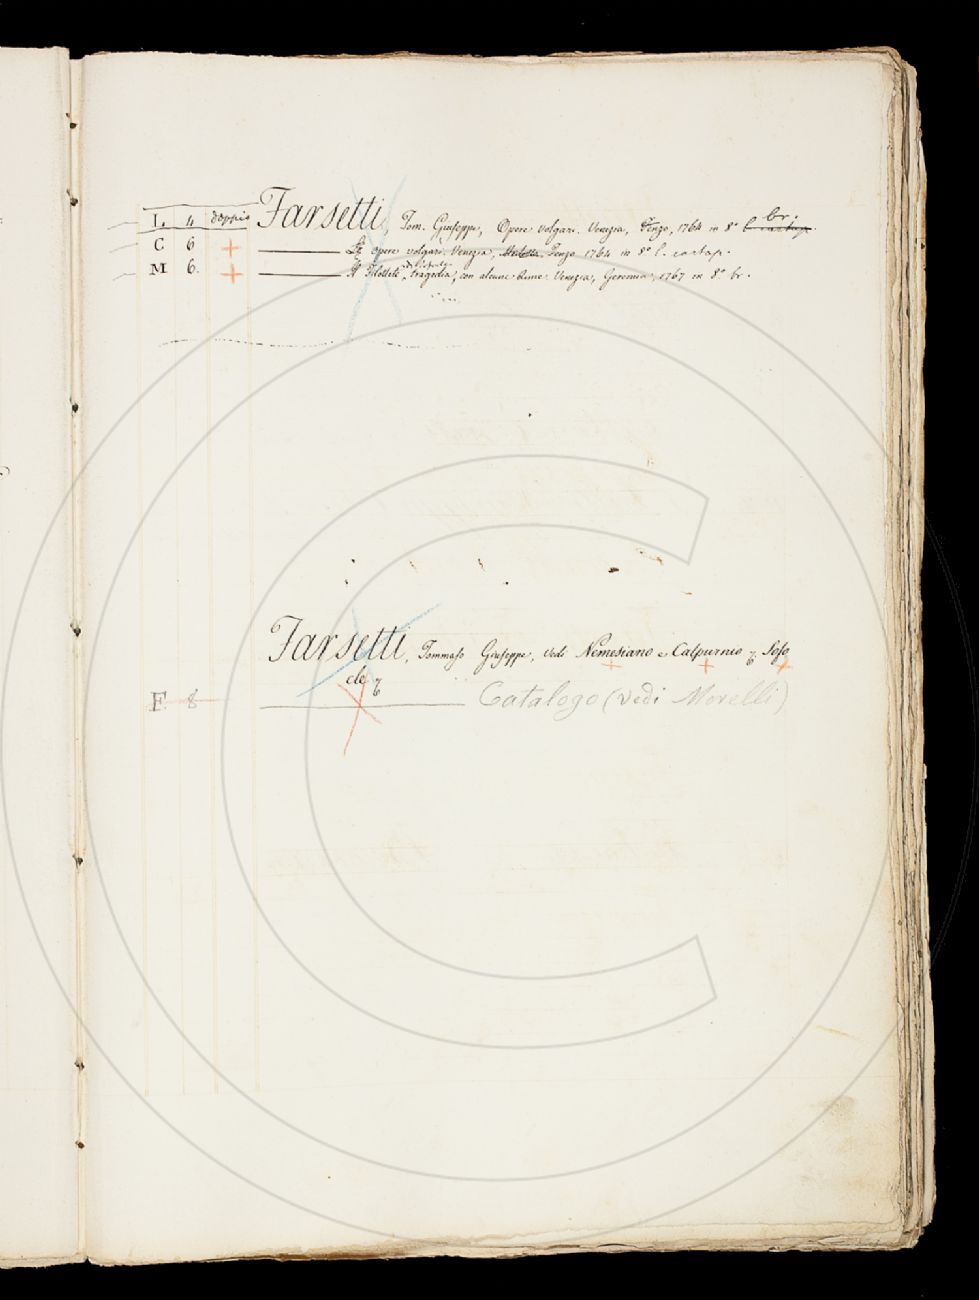 L. 4 doppio Farsetti, Tom. Giuseppe, Opere volgari. Venezia, Fenzo, 1764 in 8º l. cartap. br.
C 6 + Le opere volgari. Venezia, Fenzo 1764 in 8º l. cartap.
M 6. + Il Filottete, di Sofocle tragedia, con alcune Rime Venezia, 1767 in 8º br.
Farsetti, Tommaso Giuseppe, vedi Nemesiano e Calpurnio Sofo
cle
F. 8 Catalogo (vedi Morelli)